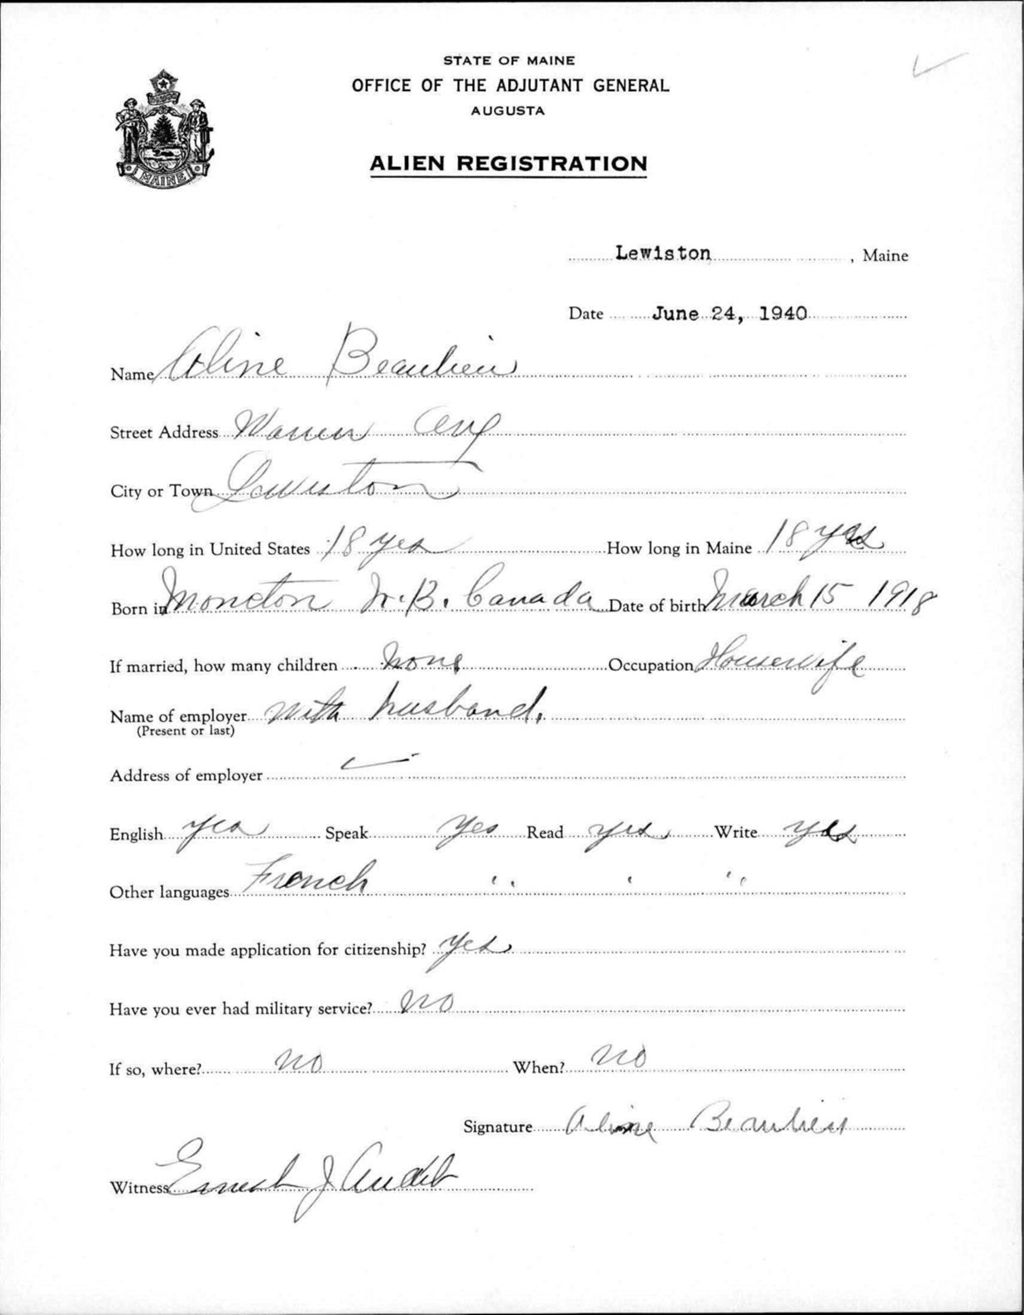 STATE OF MAINE
OFFICE OF THE ADJUTANT GENERAL
AUGUSTA
ALIEN REGISTRATION
MAINE
Lewiston, Maine
Date June 24, 1940
Name Aline Beaulieu
Street Address Warren Ave
City or Town Lewiston
How long in United States 18 yes How long in Maine 18 yes
Born in Moncton N.B. Canada Date of birth March 15 1918
If married, how many children none Occupation Housewife
Name of employer with husband.
(Present or last)
Address of employer —
English yes Speak yes Read yes Write yes
Other languages French " " "
Have you made application for citizenship? yes
Have you ever had military service? no
If so, where? no When? no
Signature Aline Beaulieu
Witness Ernest J Audet